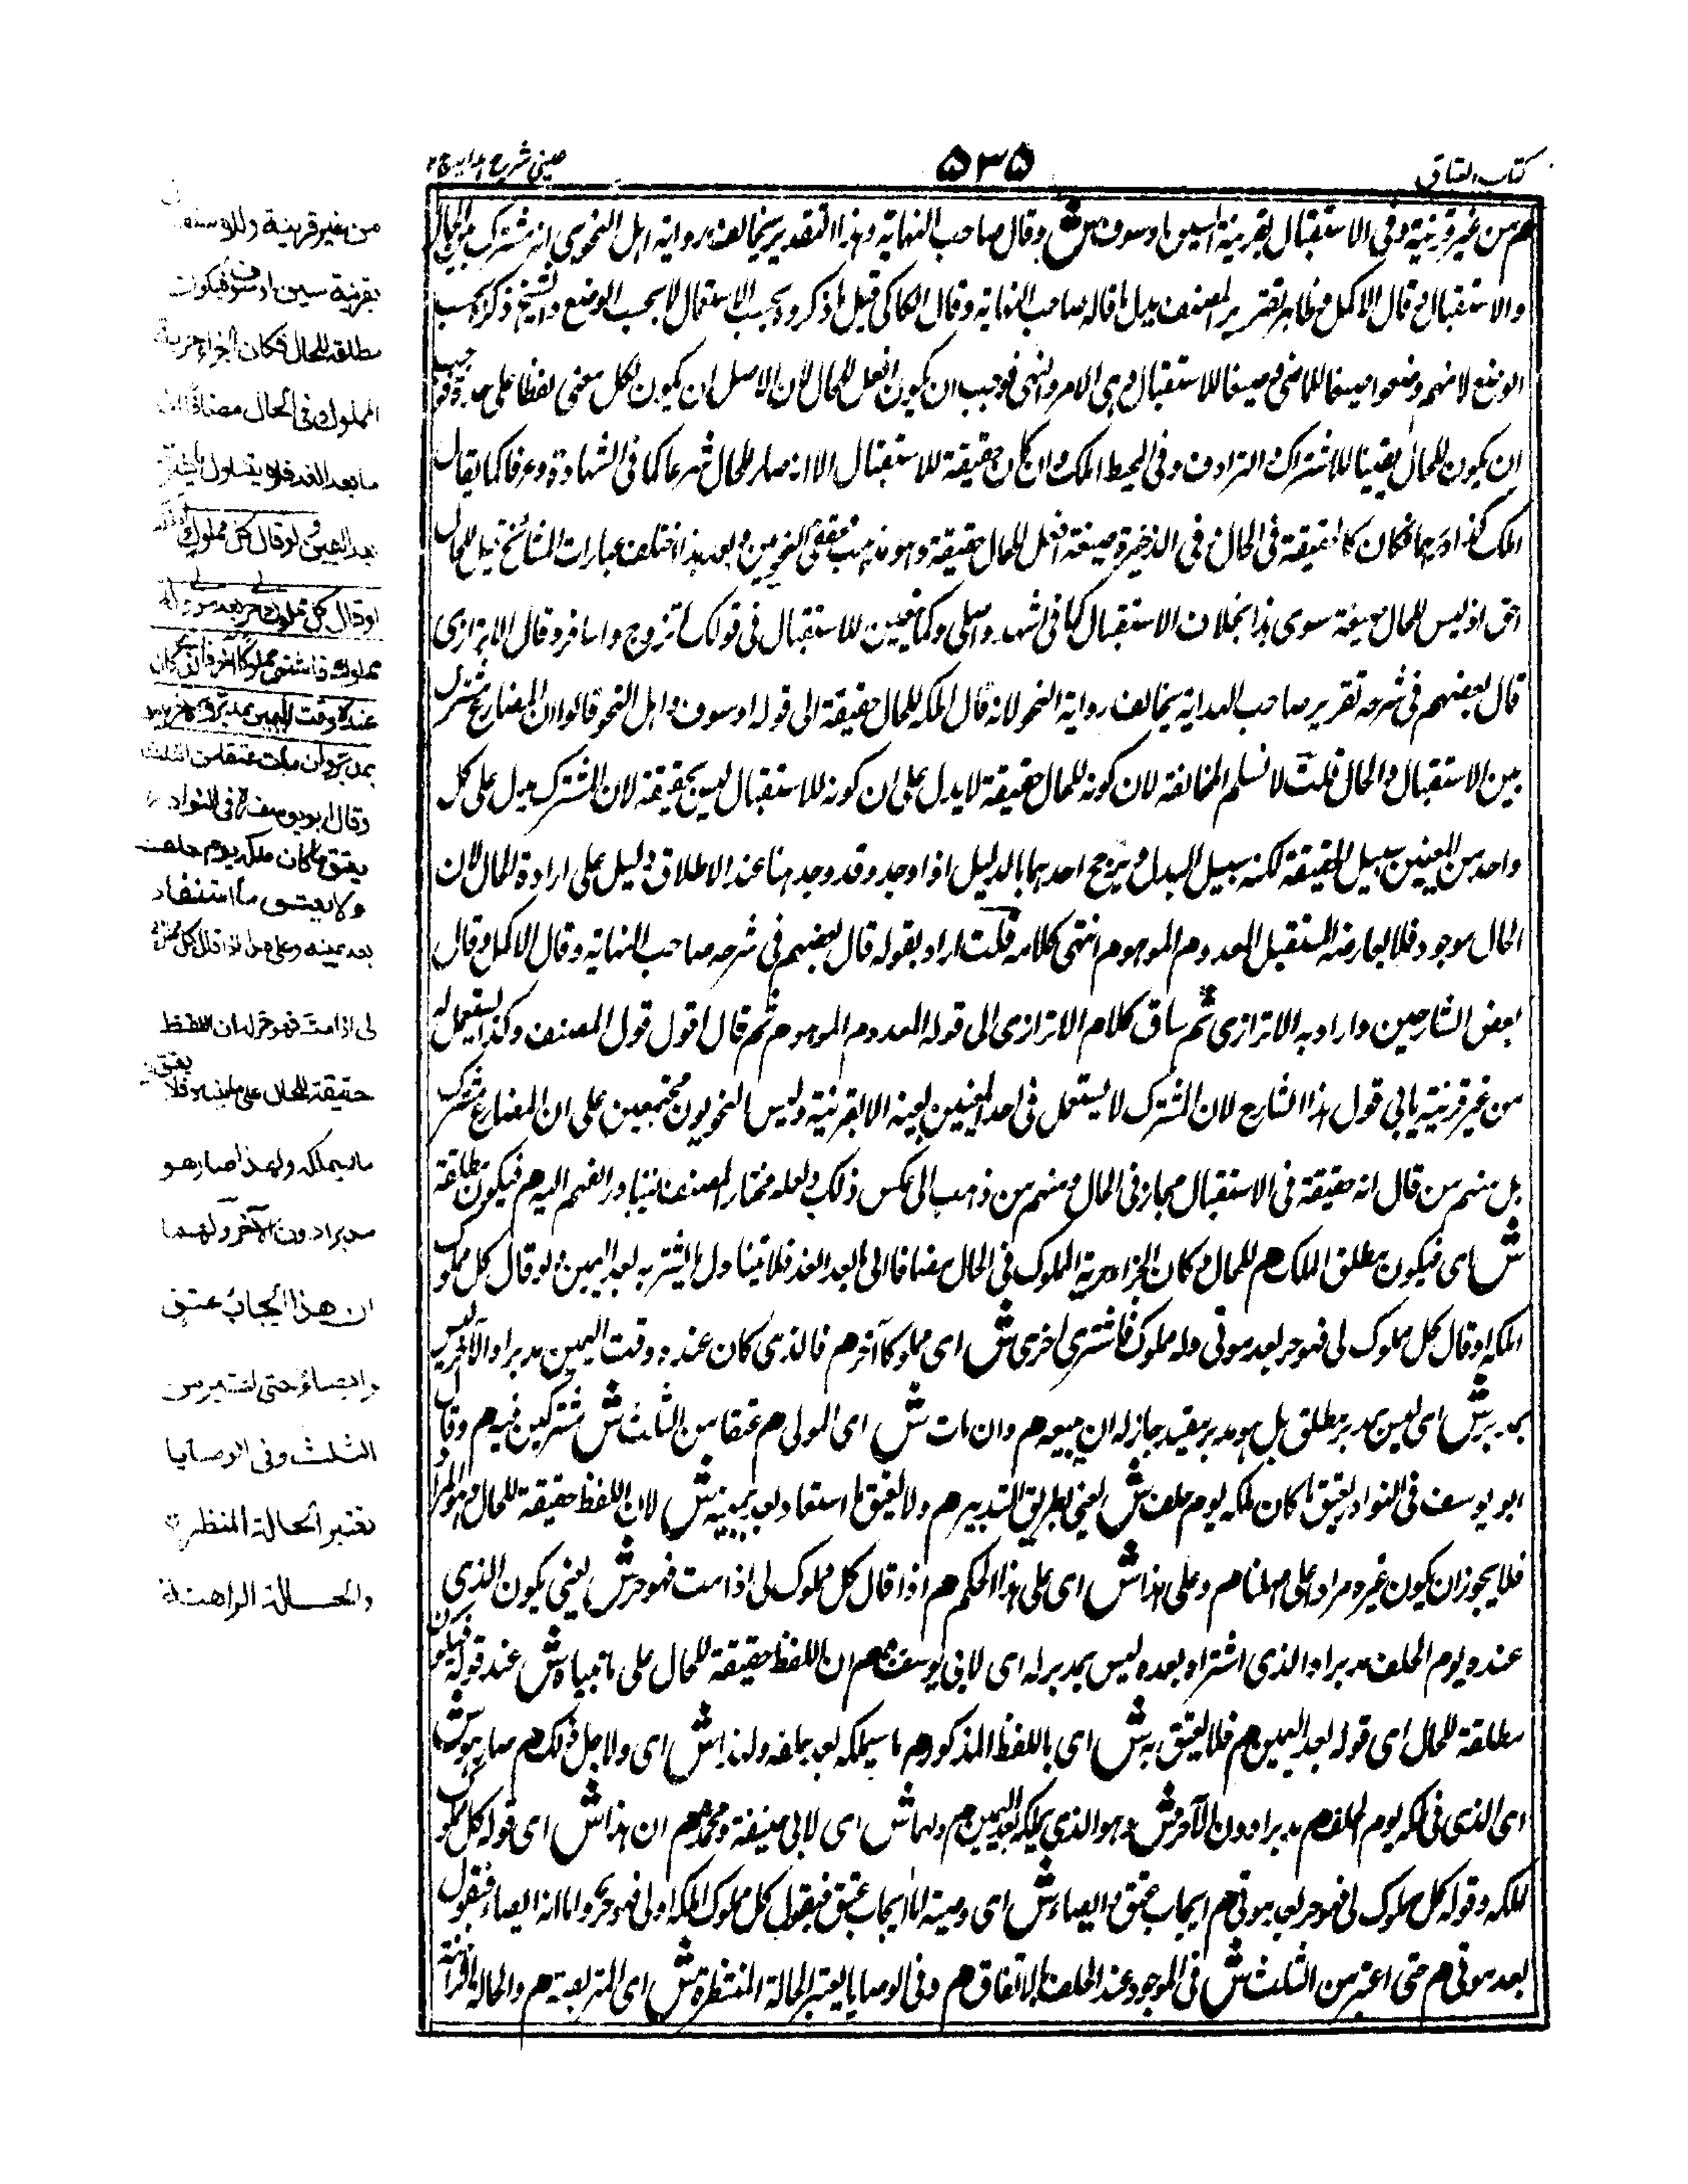 كتاب العتاق
٥٣٥
عينى شرح هدايه ج ٢
هم من غير قرينة وفى الاستقبال بقرينة السين او سوف ش وقال صاحب النهاية وهذا التقدير يخالف رواية اهل النحو هى انه مشترك بين الحال
والاستقبال وقال الاكمل وظاهر تقرير المصنف يدل ما قاله صاحب النهاية وقال الكاكى قيل ما ذكروه بحسب الاستعمال لا بحسب الوضع والشيخ ذكره بحسب
الوضع لانهم وضعوا صيغا للماضى وصيغا للاستقبال وهى الامر والنهى فوجب ان يكون افعل للحال لان الاصل ان يكون لكل معنى لفظا على حدة
ان يكون للحال يقينا للاشتراك والترادف وفى المحيط املك وان كان حقيقة للاستقبال الا انه صار للحال شرعا كما فى الشهادة وعرفا كما يقال
املك كذا درهما فكان كالحقيقة فى الحال وفى الذخيرة صيغة افعل للحال حقيقة وهو مذهب محققى النحويين وبعد هذا اختلف عبارات المشائخ قيل للحال
احق اذ ليس للحال صيغة سوى هذا بخلاف الاستقبال كما فى اشهد واصلى وكما تعين للاستقبال فى قولك اتزوج واسافر وقال الاترازى
قال بعضهم فى شرحه تقرير صاحب الهداية يخالف رواية النحو لانه قال املكه للحال حقيقة الى قوله او سوف واهل النحو قالوا ان المضارع مشترك
بين الاستقبال والحال قلت لا نسلم المخالفة لان كونه للحال حقيقة لا يدل على ان كونه للاستقبال ليس بحقيقة لان المشترك يدل على كل
واحد من المعنيين سبيل الحقيقة لكنه سبيل البدل ويرجح احدهما بالدليل اذا وجد وقد وجد هنا عند الاطلاق دليل على ارادة الحال لان
الحال موجود فلا يعارضه المستقبل المعدوم الموهوم انتهى كلامه قلت اراد بقوله قال بعضهم فى شرحه صاحب النهاية وقال الاكمل وقال
بعض الشارحين واراد به الاترازى ثم ساق كلام الاترازى الى قوله المعدوم الموهوم ثم قال اقول قول المصنف وكذا يستعمل له
من غير قرينة يابى قول هذا الشارح لان المشترك لا يستعمل فى احد المعنيين بعينه الا بقرينة وليس النحويون مجتمعين على ان المضارع مشترك
بل منهم من قال انه حقيقة فى الاستقبال مجاز فى الحال ومنهم من ذهب الى عكس ذلك ولعله مختار المصنف لتبادر الفهم اليه هم فيكون مطلقه
ش اى فيكون مطلق املك هم للحال وكان الجزاء حرية المملوك فى الحال مضافا الى ما بعد الغد فلا يتناول ما يشتريه بعد اليمين ولو قال كل مملوك
املكه او قال كل مملوك لى فهو حر بعد موتى وله مملوك فاشترى اخرى ش اى مملوكا آخر هم فالذى كان عنده وقت اليمين مدبر والآخر ليس
بمدبر ش اى ليس بمدبر مطلق بل هو مدبر مقيد جاز له ان يبيعه هم وان مات ش اى المولى هم عتقا من الثلث ش مشتركين فيه هم وقال
ابو يوسف فى النوادر يعتق ما كان ملكه يوم حلف ش يعنى بطريق التدبير هم ولا يعتق ما استفاد بعد يمينه ش لان اللفظ حقيقة للحال وهو المراد
فلا يجوز ان يكون غيره مراد على اصلنا هم وعلى هذا ش اى على هذا الحكم هم اذا قال كل مملوك لى اذا مت فهو حر ش يعنى يكون الذى
عنده يوم الحلف مدبرا والذى اشتراه بعده ليس بمدبر له اى لابى يوسف هم ان اللفظ حقيقة للحال على ما بيناه ش عند قوله فيكون
مطلقه للحال اى قوله بعد اليمين هم فلا يعتق به ش اى باللفظ المذكور هم ما سيملكه بعد حلفه ولهذا ش اى ولاجل ذلك هم صار هو ش
اى الذى فى ملكه يوم الحلف هم مدبرا دون الآخر ش وهو الذى يملكه بعد اليمين هم ولهما ش اى لابى حنيفة ومحمد هم ان هذا ش اى قوله كل مملوك
املكه وقوله كل مملوك لى فهو حر بعد موتى هم ايجاب عتق وايصاء ش اى وصية اما ايجاب عتق فبقول كل مملوك املكه او لى فهو حر واما انه ايصاء فبقول
بعد موتى هم حتى اعتبر من الثلث ش فى الموجود عند الحلف بالاتفاق هم وفى الوصايا يعتبر الحالة المنتظرة ش اى المتربصة هم والحالة الراهنة
من غير قرينة وللاستقبال
بقرينة سين او سوف فيكون
مطلقه للحال فكان الجزاء حرية
المملوك فى الحال مضافا الى
ما بعد الغد فلا يتناول ما يشتريه
بعد اليمين ولو قال كل مملوك املكه
او قال كل مملوك لى حر بعد موتى وله
مملوك فاشترى مملوكا آخر فالذى كان
عنده وقت اليمين مدبر والآخر ليس
بمدبر وان مات عتقا من الثلث
وقال ابو يوسف فى النوادر
يعتق ما كان ملكه يوم حلف
ولا يعتق ما استفاد
بعد يمينه وعلى هذا اذا قال كل مملوك
لى اذا مت فهو حر له ان اللفظ
حقيقة للحال على ما بيناه فلا يعتق به
ما سيملكه ولهذا صار هو
مدبرا دون الآخر ولهما
ان هذا ايجاب عتق
وايصاء حتى اعتبر من
الثلث وفى الوصايا
تعتبر الحالة المنتظرة
والحالة الراهنة